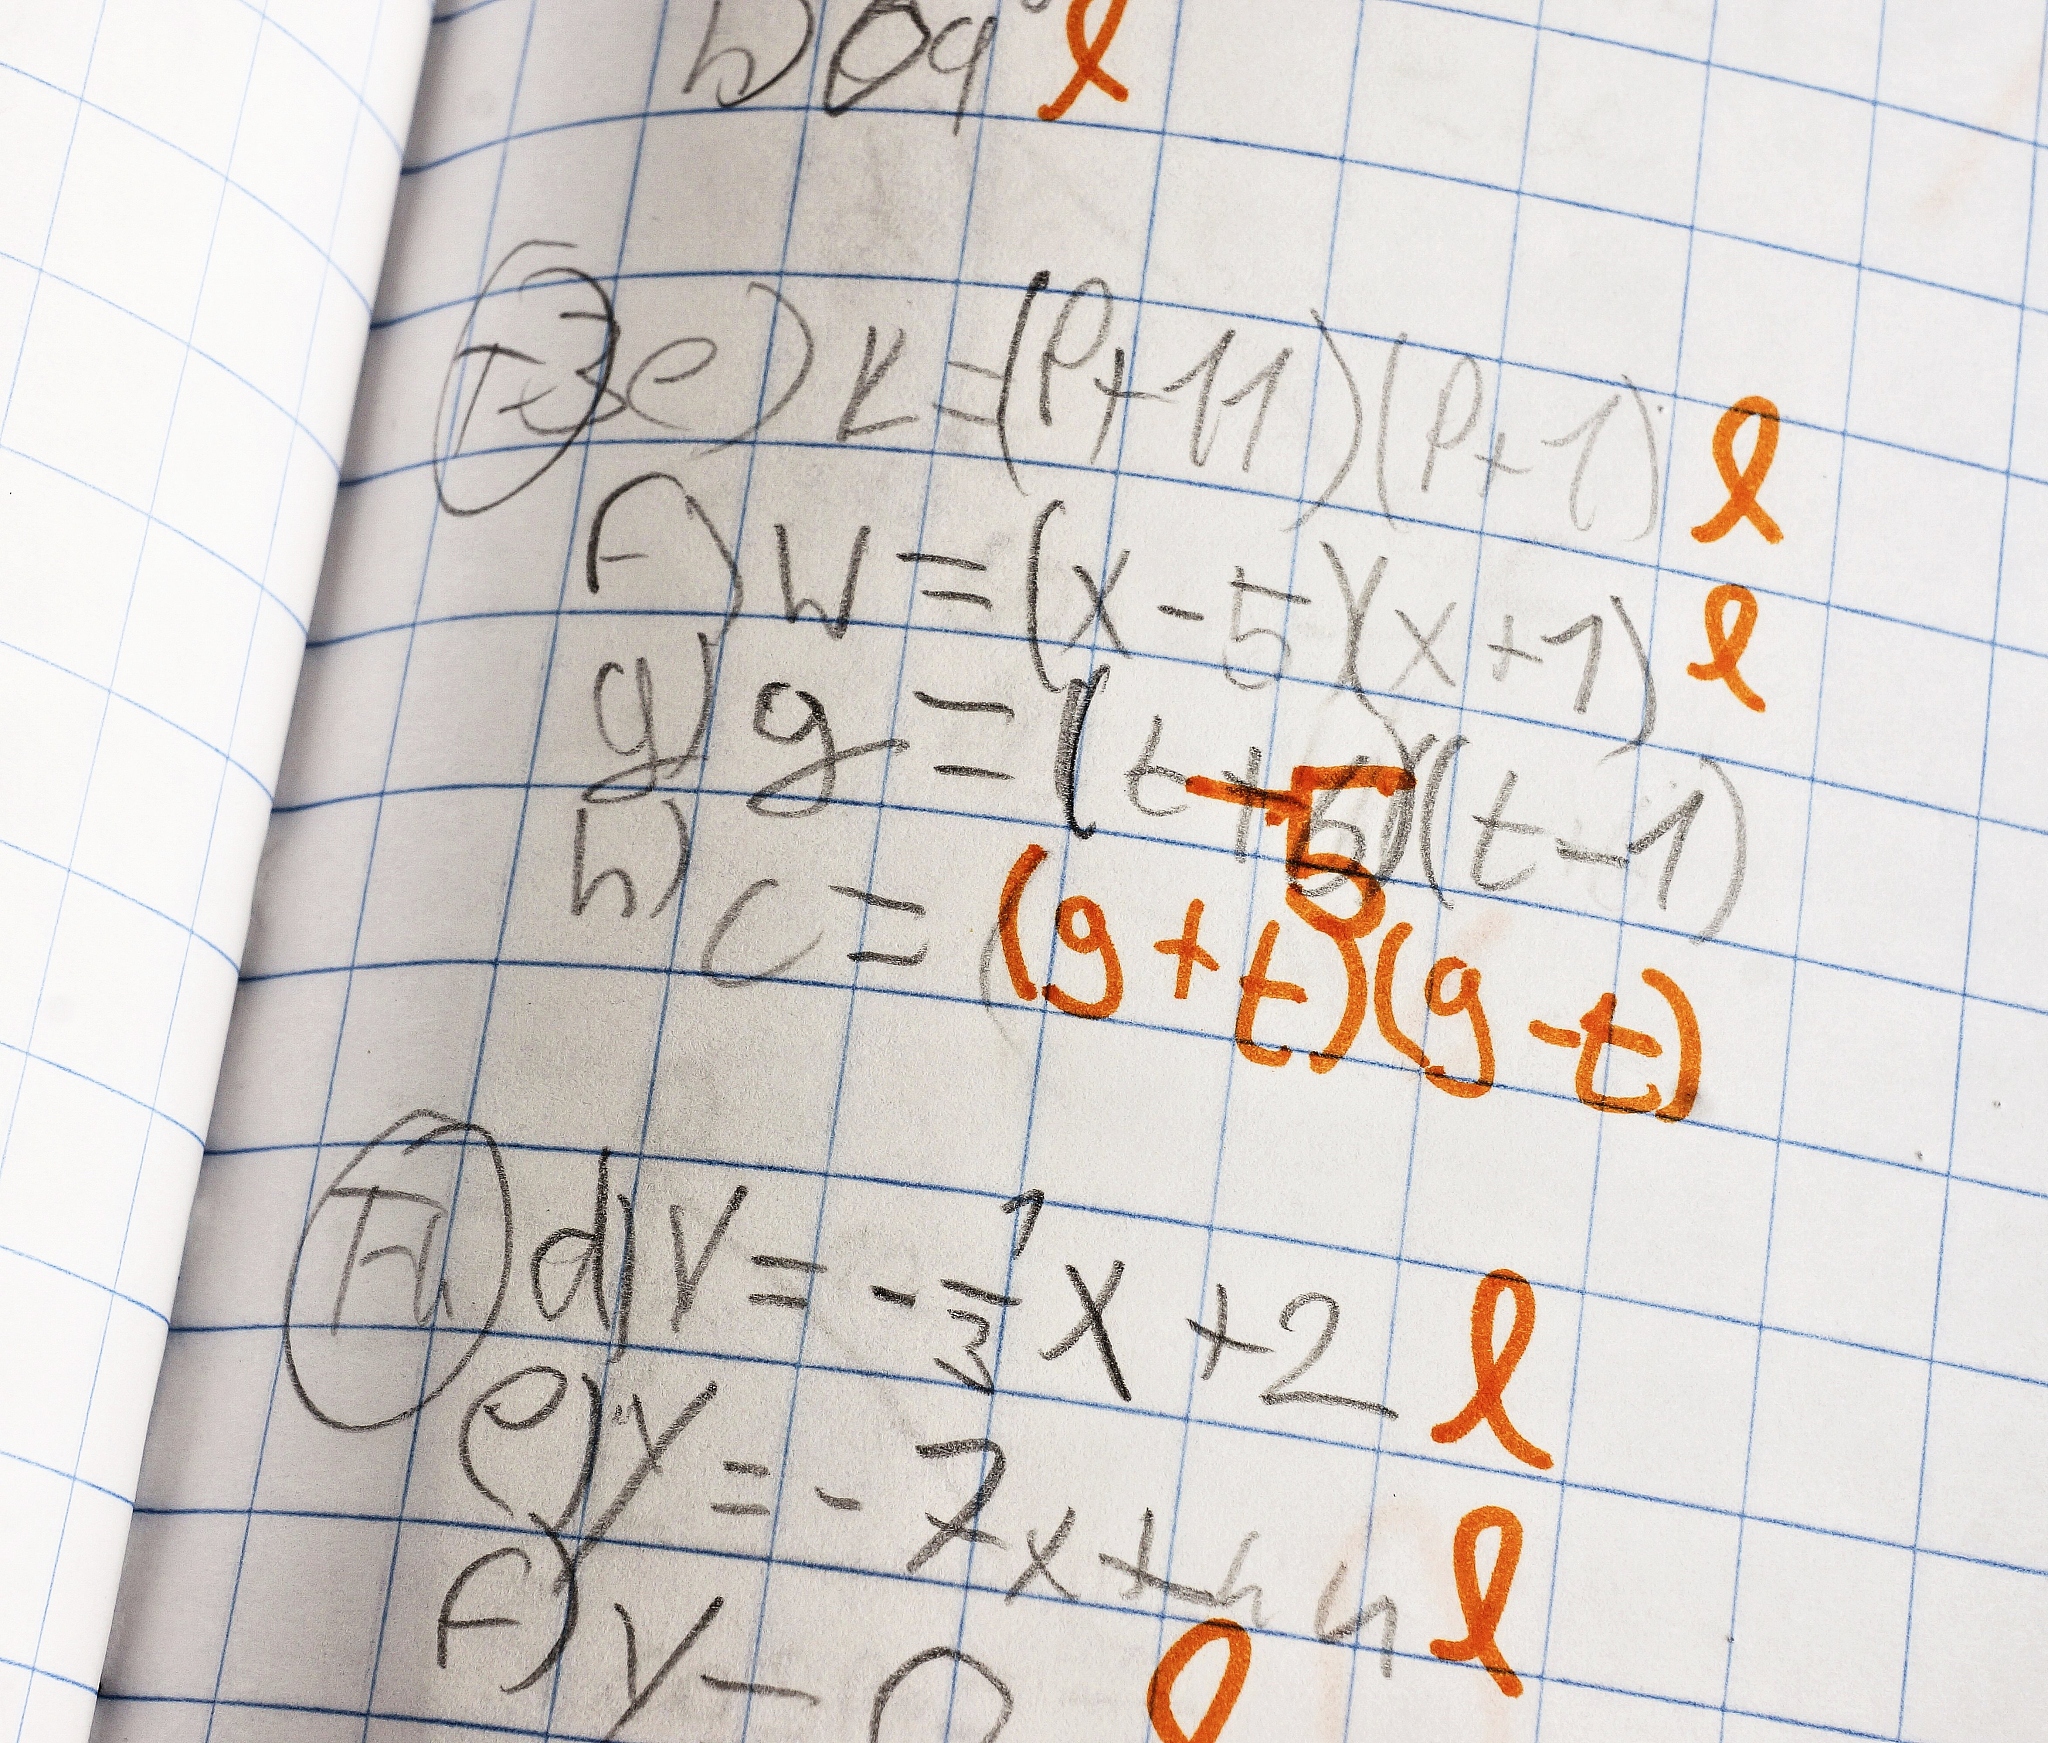 h) 0g ℓ
T3 e) K = (P+11)(P+1) ℓ
f) W = (x-5)(x+1) ℓ
g) g = (t-5)(t-1)
h) c = (g+t)(g-t)
T4 d) Y = -1/3 x +2 ℓ
e) Y = -7x+4 4 ℓ
f) Y = 0 ℓ